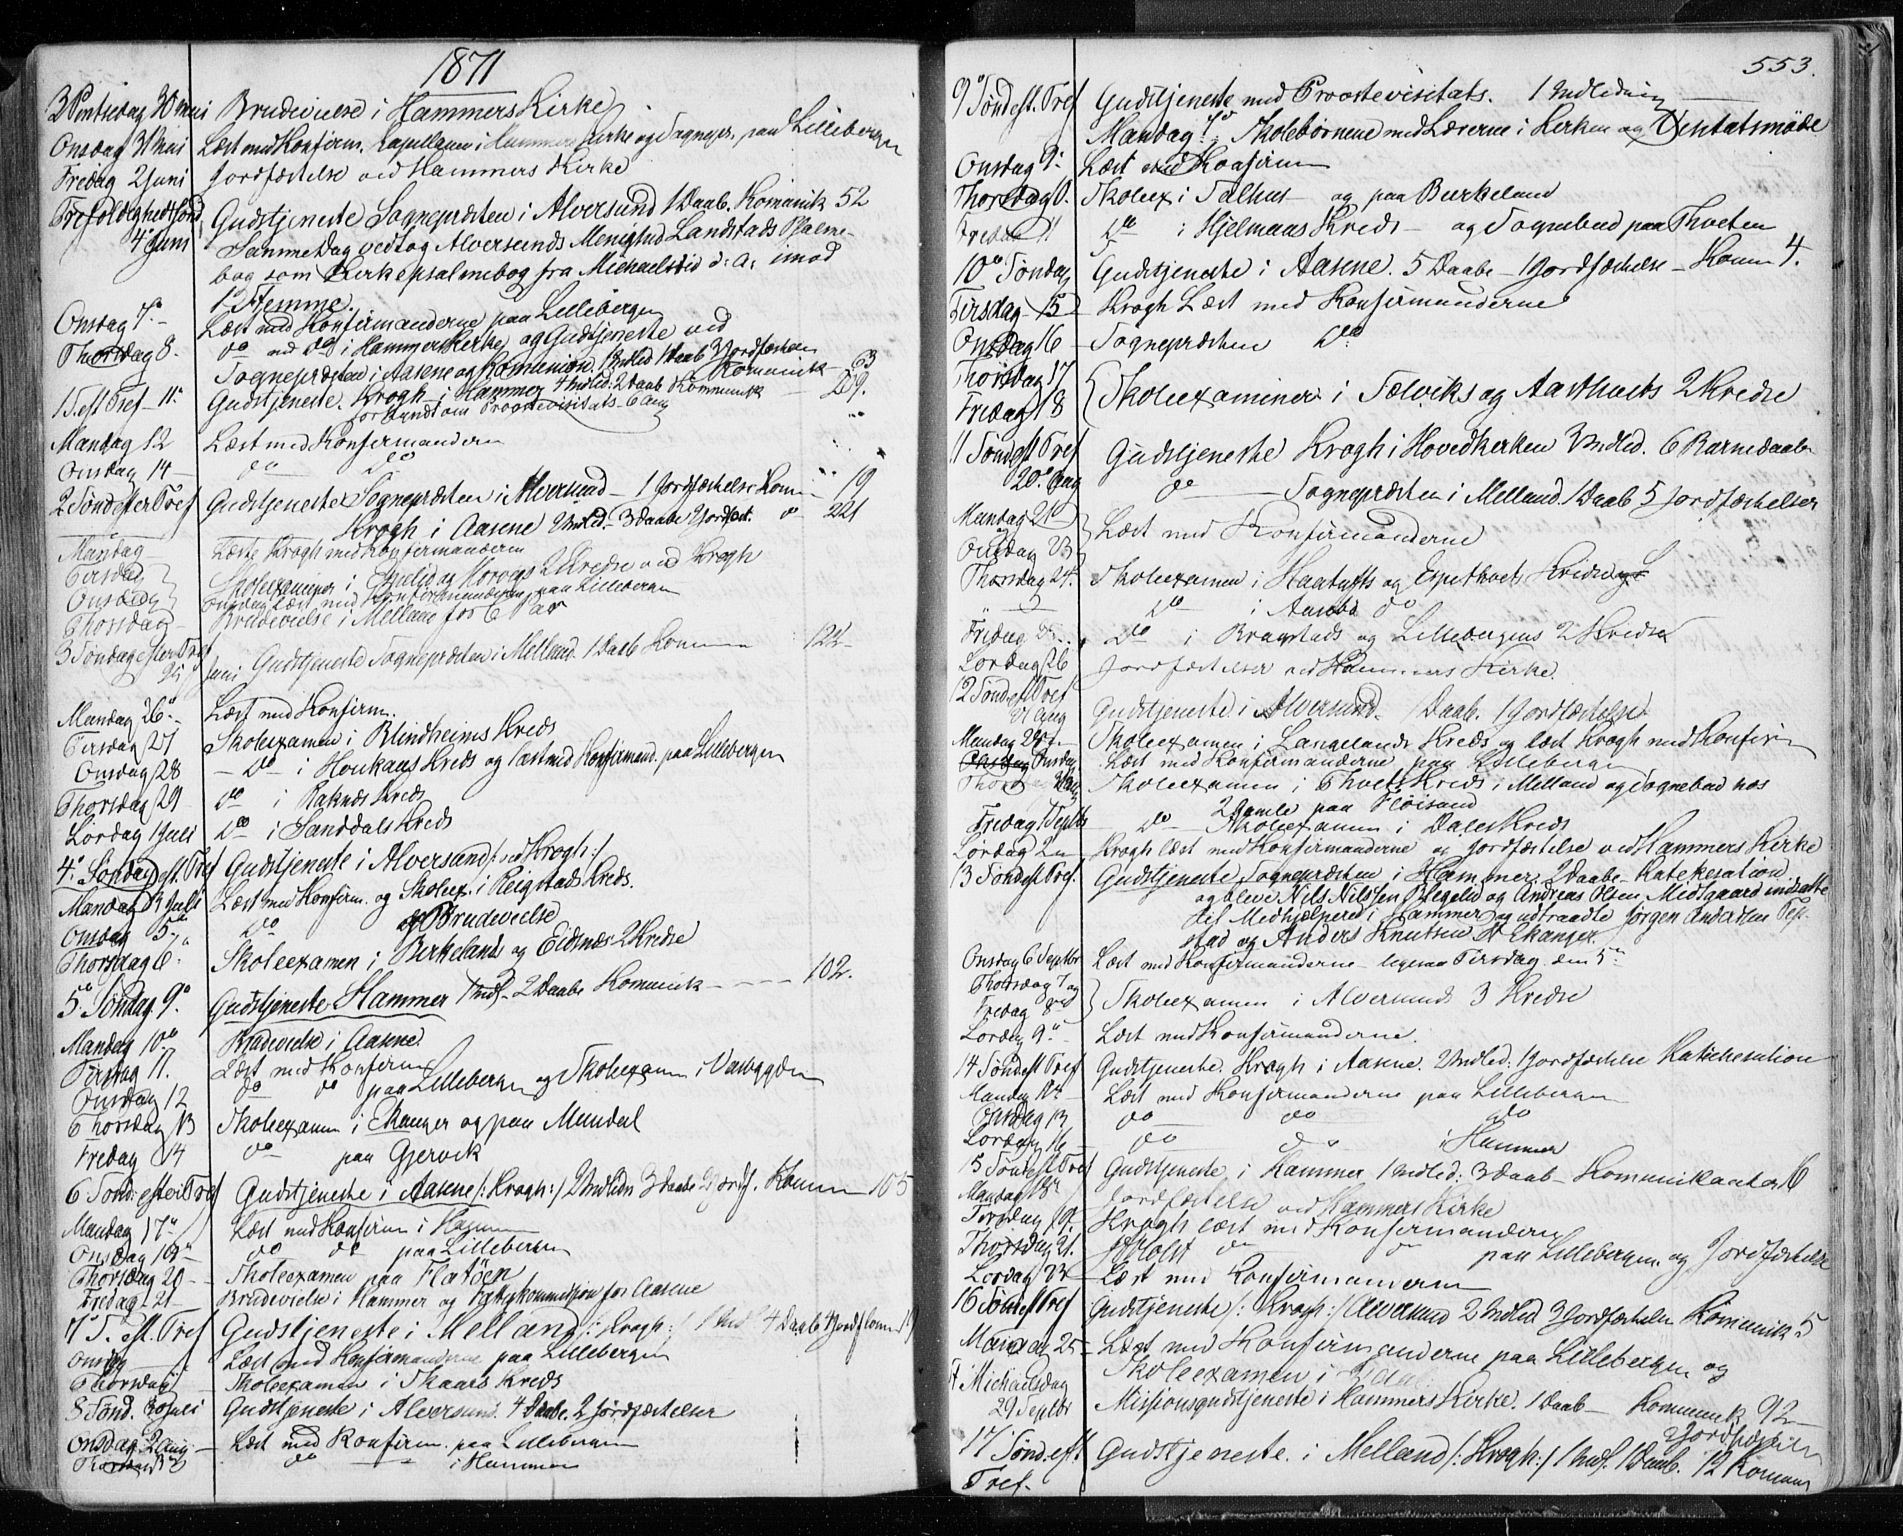 1871
3 Pintsedag 30 Mai Brudevielse i Hammers Kirke
Onsdag 31 Mai Læst med Konfirm. Kapellanen i Hammers Kirke og Sognepr. paa Lillebergen
Fredag 2 Juni Jordfæstelse ved Hammers Kirke
Trefoldighedssønd. Gudstjeneste Sognepræsten i Alversund 1 Daab. Komunik 52
4de Juni Samme Dag vedtog Alversunds Menighed Landstads Psalme-
bog som Kirkepsalmebog fra Michaelstid d: A: imod
1 Stemme.
Onsdag 7de Læst med Konfirmanderne paa Lillebergen
Thorsdag 8. do med do i Hammers Kirke og Gudstjeneste ved
Sognepræsten i Aasene og Komunion. 1 Indled 1 Daab 3 Jordfæstelser Komunik 63
1 S. eft Tref 11te Gudstjeneste. Krogh i Hammer 4 Indled: 2 Daab Kommunik 259.
forkyndt om Proostevisitats 6 Aug
Mandag 12 Læst med Konfirmanderne
Onsdag 14 do do
2 Sønd efter Tref Gudstjeneste Sognepræsten i Alversund 1 Jordfæstelse Kom 19
Krogh i Aasene 2 Indled. 3 Daabe 2 Jordfæst. do 221
Mandag Læste Krogh med Konfirmanderne
Tirsdag Skoleexamener i og 2 Kredse ved Krogh
Onsdag Onsdag læst med Konfirmanderne paa Lillebergen
Thorsdag Brudevielse i Melland for 6 Par
3 Søndag efter Tref
25 Juni Gudstjeneste Sognepræsten i Melland. 1 Daab Komun 122
Mandag 26de Læst med Konfirm.
Tirsdag 27 Skoleexamen i Blindheims Kreds
Onsdag 28 do i Houkaas Kreds og læst med Konfirmand. paa Lillebergen
Thorsdag 29 do i Raknes Kreds
Lørdag 1 Juli do i Sanddals Kreds
4de Søndag eft. Tref Gudstjeneste i Alversund /: ved Krogh :/
Mandag 3 Juli Læst med Konfirm. og Skoleex. i Reigstads Kreds.
Onsdag 5te do og Brudevielse
Thorsdag 6te Skoleexamen i Birkelands og Eidsnes 2 Kredse
5te Søndag 9de Gudstjeneste Hammer 1 Indl. 2 Daabe Komunik 102.
Mandag 10de Brudevielse i Aasene
Tirsdag 11. Læst med Konfirm
Onsdag 12 do do paa Lillebergen og Skoleexamen i Vasbygden
Thorsdag 13 Skoleexamen i Ekanger og paa Mundal
Fredag 14 do paa Gjervik
6 Sønd: efter Tref Gudstjeneste i Aasene /: Krogh :/ 2 Indledn 3 Daabe 2 Jordf. Komun 105
Mandag 17de Læst med Konfirm i Hammer
Onsdag 19de do do paa Lillebergen
Thorsdag 20 Skoleexamen paa Flatøen
Fredag 21 Brudevielse i Hammer og kommission for Aasene
7de S. eft. Tref Gudstjeneste i Melland /: Krogh :/ 1 Indl 4 Daab 4 Jordf Komun 19
Onsdag Læst med Konfirmanderne paa Lillebergen
Thorsdag Skoleexamen i Skaars Kreds
8 Sønd. 30 Juli Gudstjeneste i Alversund. 4 Daabe. 2 Jordfæstelser
Onsdag 2 Aug Læst med Konfirm. paa Lillebergen
Thorsdag 3 do i Hammer
553.
9de Sønd eft. Tref Gudstjeneste med Proostevisitats. 1 Indledning
Mandag 7de Skolebørnene med Lærerne i Kirken og Visitatsmøde
Onsdag 9de Læst med Konfirm
Thorsdag 10. Skoleex i Salhus og paa Birkeland
Fredag 11 do i Hjelmaas Kreds og Sognebud paa Thveten
10de Søndag Gudstjeneste i Aasene. 5 Daabe 1 Jordfæstelse Komun 4.
Tirsdag 15 Krogh Læst med Konfirmanderne
Onsdag 16 Sognepræsten do
Thorsdag 17
Fredag 18 Skoleexaminer i Sælviks og 2 Kredse
11 Sønd eft Tref Gudstjeneste Krogh i Hovedkirken 3 Indled. 6 Barnedaab
20de Aug do Sognepræsten i Melland. 1 Daab 5 Jordfæstelser
Mandag 21
Onsdag 23 Læst med Konfirmanderne
Thorsdag 24. Skoleexamen i Haatufts og Espethvets Kredse
do i do
Fredag 25. do i og Lillebergens 2 Kredse
Lørdag 26 Jordfæstelser ved Hammers Kirke.
12 Sønd eft Tref
27 Aug Gudstjeneste i Alversund. 1 Daab. 1 Jordfæstelse
Mandag 28de Skoleexamen i Langelands Kreds og læst Krogh med Konfirm
Onsdag Læst med Konfirmanderne paa Lillebergen
Skoleexamen i Thvets Kreds i Melland og Sognebud hos
2 Gamle paa Fløisand
Fredag 1 Septbr do Skoleexamen i Dales Kreds
Lørdag 2 Krogh læst med Konfirmanderne og Jordfæstelse ved Hammers Kirke
13 Sønd eft Tref. Gudstjeneste Sognepræsten i Hammer 2 Daabe Katekesation
og bleve Nils Nilssen og Andreas Olsen Midtgaard indsatte
til Medhjælpere i Hammer og udtraadte Jørgen Andersen
og Anders Knutsen Ekanger.
Onsdag 6 Septbr Læst med Konfirmanderne ligesaa Tirsdag den 5te
Thorsdag 7 og
Fredag 8de Skoleexamen i Alversund 3 Kredse
Lørdag 9de Læst med Konfirmanderne.
14 Sønd eft Tref Gudstjeneste. Krogh i Aasene. 2 Indled: 1 Jordfæstelse Katichesation
Mandag Læst med Konfirmanderne paa Lillebergen
Onsdag 13 do do do
Lørdag 16 do do i Hammer
15 Sønd eft Tref Gudstjeneste i Hammer 1 Indled: 3 Daab Komunikanter 16
Mandag 18de Jordfæstelse ved Hammers Kirke
Tirsdag 19. Krogh læst med Konfirmanderne
Thorsdag 21. do do paa Lillebergen og Jordfæstelse
Lørdag 23 Læst med Konfirmanderne
16 Sønd eft Tref Gudstjeneste /: Krogh :/ Alversund 2 Indled 3 Jordfæstelser Komunik 5
Mandag 25 Læst med Konfirmanderne paa Lillebergen og
Skoleexamen i
Michaelsdag
29 Septbr Missionsgudstjeneste i Hammers Kirke. 1 Daab Komunik 92
Jordfæstelse
17 Sønd: eft Gudstjeneste i Melland /: Krogh :/ 1 Indl. 1 Daab. 12 Komun
Tref.